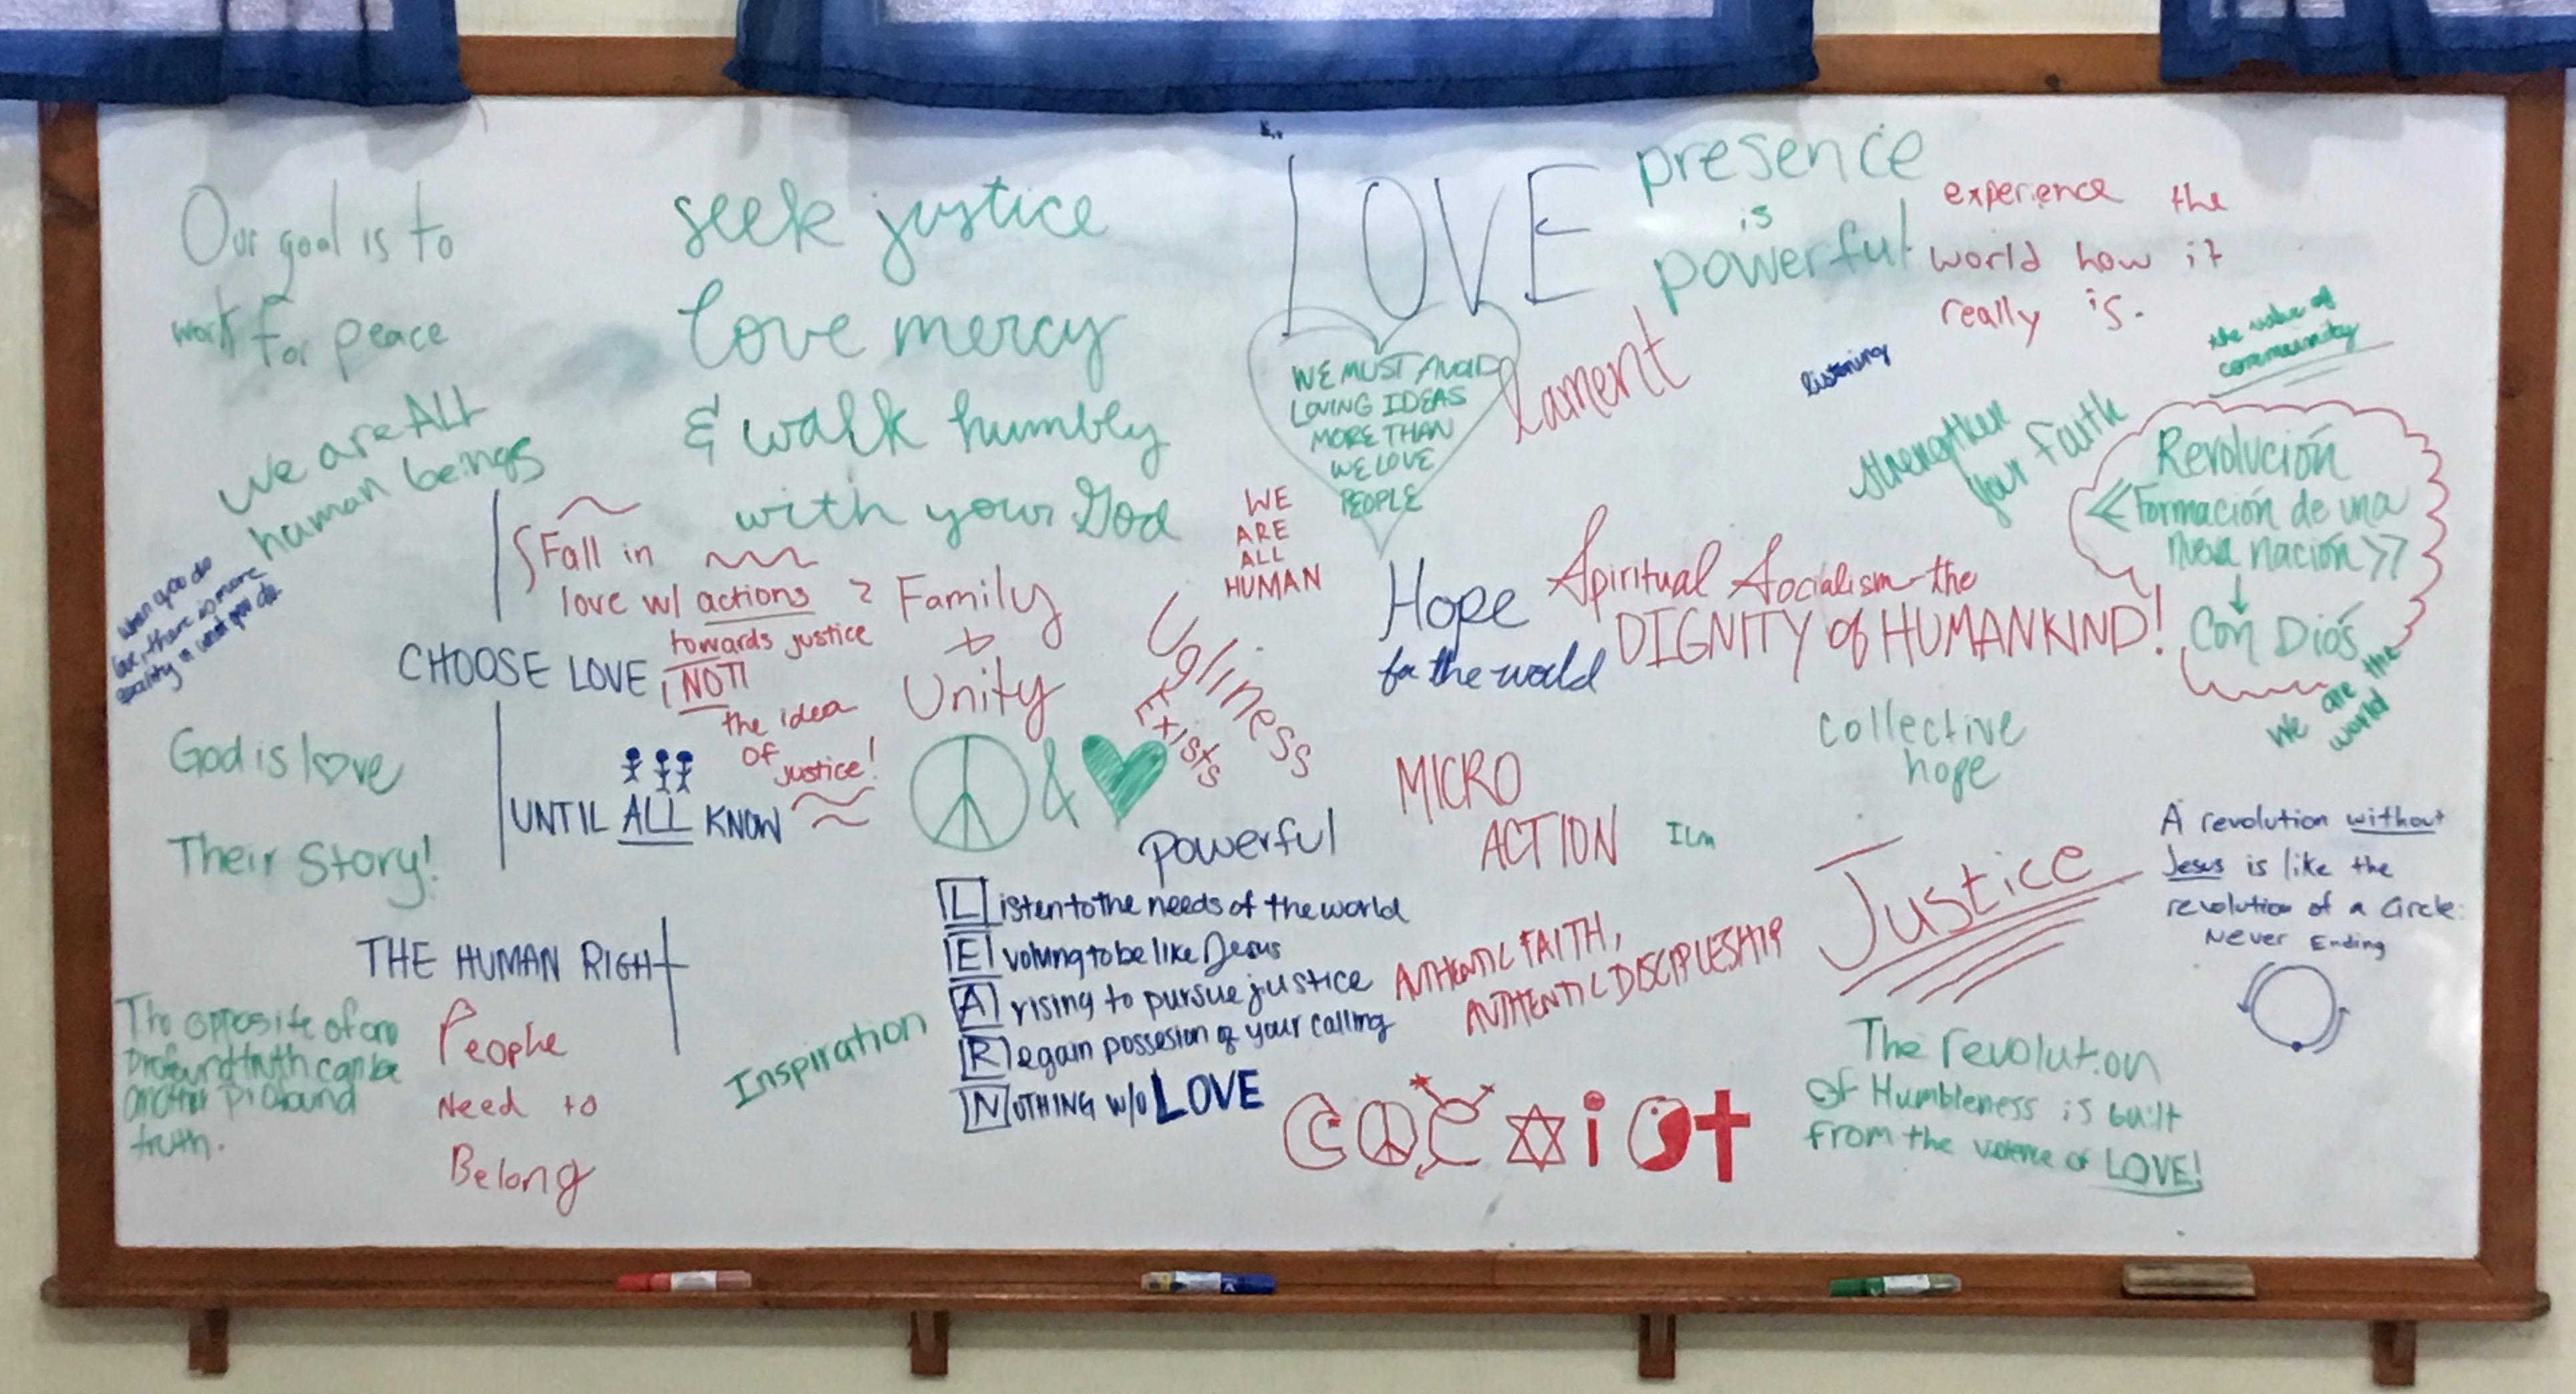 Our goal is to
work for peace
seek justice
love mercy
& walk humbly
with your God
LOVE
presence
is
powerful
experience the
world how it
really is.
WE MUST AVOID
LOVING IDEAS
MORE THAN
WE LOVE
PEOPLE
lament
listening
the value of
community
strengthen
your Faith
Revolución
<<Formación de una
nueva nación>>
Con Diós
we are ALL
human beings
when you do
love, there is more
quality in what you do.
Fall in
love w/ actions
towards justice
NOT
the idea
of
justice!
CHOOSE LOVE
UNTIL ALL KNOW
Family
+
Unity
WE
ARE
ALL
HUMAN
Ugliness
Exists
Hope
for the world
Spiritual Socialism-the
DIGNITY of HUMANKIND!
we are the
world
God is love
Their Story!
&
powerful
MICRO
ACTION
Ilm
collective
hope
Justice
A revolution without
Jesus is like the
revolution of a circle:
Never Ending
THE HUMAN RIGHT
The opposite of one
profound truth can be
another profound
truth.
People
Need to
Belong
Inspiration
Listen to the needs of the world
Evolving to be like Jesus
Arising to pursue justice
Regain possesion of your calling
NOTHING w/o LOVE
AUTHENTIC FAITH,
AUTHENTIC DISCIPLESHIP
COEXIST
The revolution
of Humbleness is built
from the violence of LOVE!